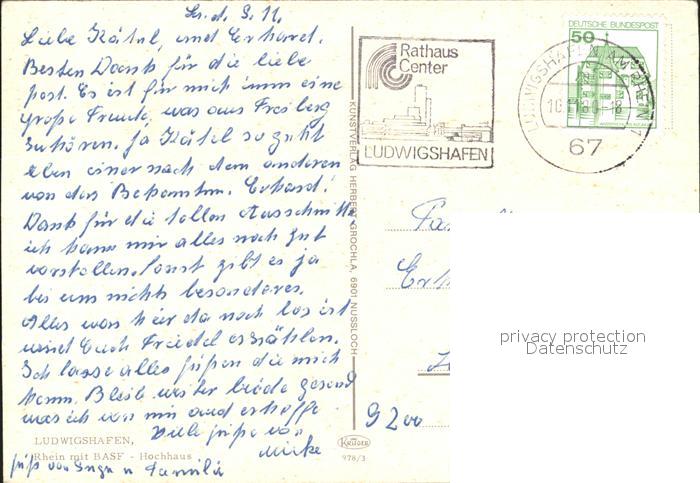 Lu. d. 9. 11.
Liebe Kätel, und Erhard.
Besten Dank für die liebe
post. Es ist für mich imm eine
große Freude, was aus Freiberg
zu hören. ja Kätel so geht
eben einer nach dem anderen
von den Bekannten. Erhard!
Dank für die tollen Ausschnitte
ich kann mir alles noch gut
vorstellen. Sonst gibt es ja
bei uns nichts besonderes.
Alles was hier da noch los ist
wird Euch Friedel erzählen.
Ich lasse alles grüßen die mich
kenn. Bleib weiter beide gesund
was ich von mir auch erhoffe
Viele grüße von
Mieke
grüß von Inge u Familie
LUDWIGSHAFEN,
Rhein mit BASF - Hochhaus
KUNSTVERLAG HERBERT GROCHLA, 6901 NUSSLOCH
KRÜGER
978/3
Rathaus
Center
LUDWIGSHAFEN
DEUTSCHE BUNDESPOST
50
LUDWIGSHAFEN AM RHEIN 1
67
Fa
Erh
9200
privacy protection
Datenschutz